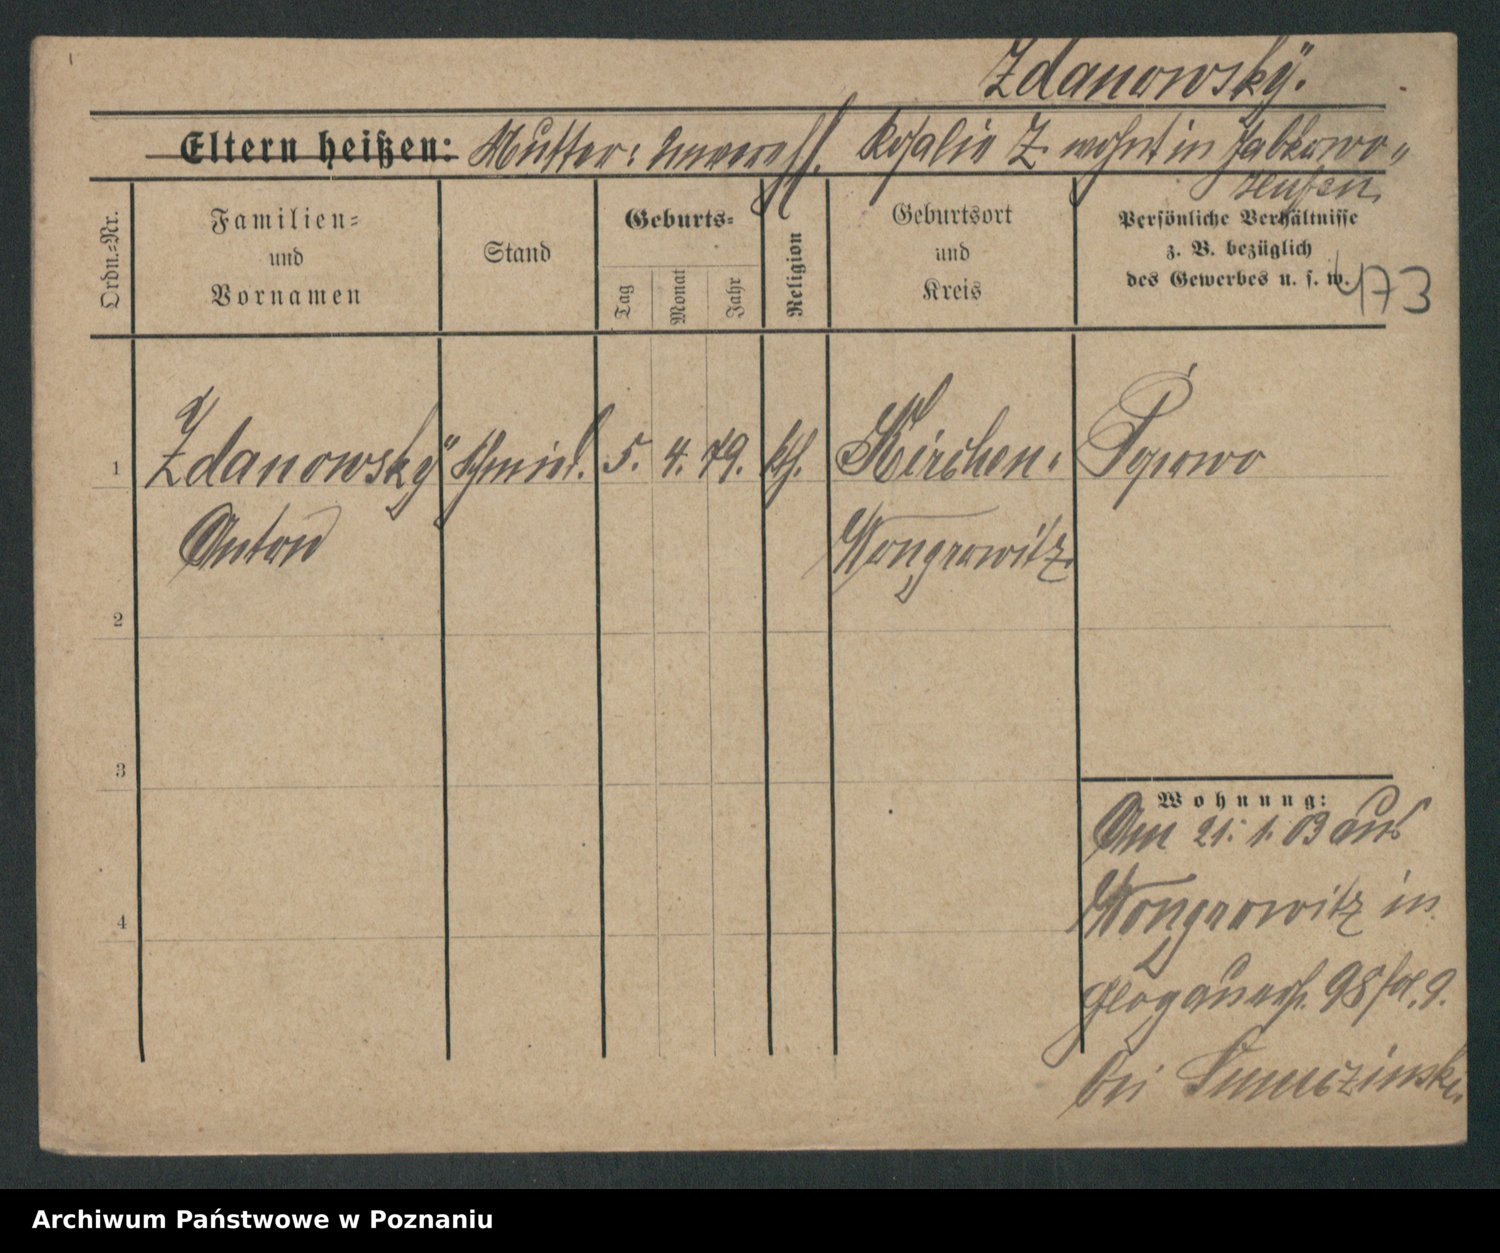 Zdanowskÿ.
Eltern heißen: Mutter: unverehl. Rosalie Z. wohnt in Jabkowo-
Hufen.
Ordn.-Nr.
Familien-
und
Vornamen
Stand
Geburts-
Tag
Monat
Jahr
Religion
Geburtsort
und
Kreis
Persönliche Verhältnisse
z. B. bezüglich
des Gewerbes u. s. w.
473
1 Zdanowskÿ Schmied. 5. 4. 79. kth. Kirchen- Popowo
Anton Wongrowitz.
2
3
4
Wohnung:
Am 21. 1. 03 aus
Wongrowitz in
Glogauerst. 98 9.
bei
Archiwum Państwowe w Poznaniu